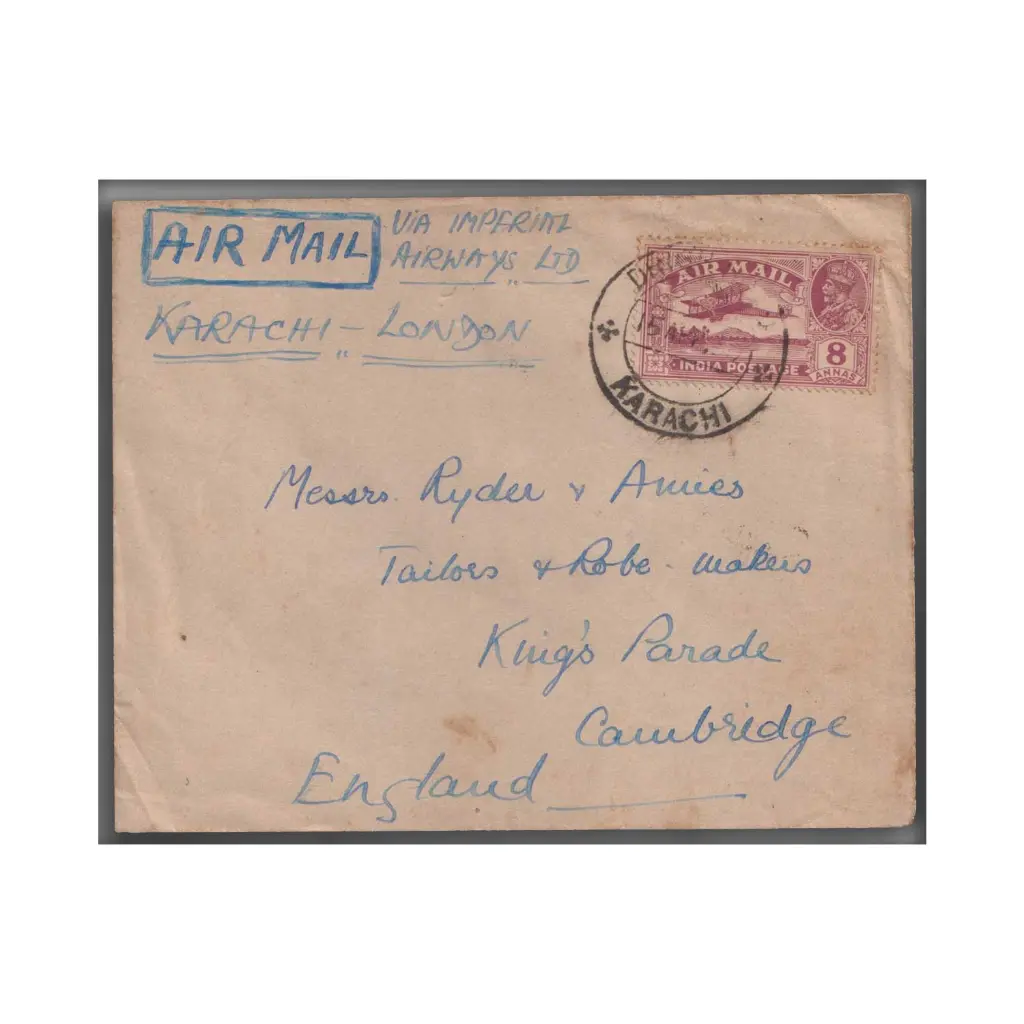 AIR MAIL
VIA IMPERIAL
AIRWAYS LTD
KARACHI - LONDON
AIR MAIL
INDIA POSTAGE
8
ANNAS
KARACHI
Messrs. Ryder & Amies
Tailors & Robe-makers
King's Parade
Cambridge
England